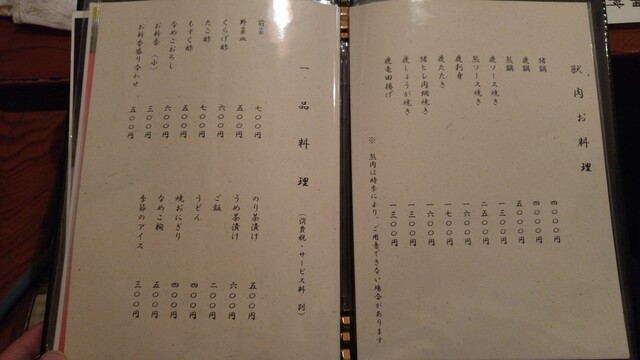 獣肉お料理
猪鍋 四〇〇〇円
鹿鍋 四〇〇〇円
熊鍋 五〇〇〇円
鹿ソース焼き 一三〇〇円
熊ソース焼き 二五〇〇円
鹿刺身 一六〇〇円
鹿たたき 一七〇〇円
猪ヒレ肉網焼き 一六〇〇円
鹿しょうが焼き 一三〇〇円
鹿竜田揚げ 一三〇〇円
※ 熊肉は時季により、ご用意できない場合があります
一品料理 (消費税・サービス料 別)
前菜 七〇〇円
野菜皿 五〇〇円
くらげ酢 六〇〇円
たこ酢 七〇〇円
もずく酢 五〇〇円
なめこおろし 六〇〇円
お新香(小) 三〇〇円
お新香盛り合わせ 五〇〇円
のり茶漬け 五〇〇円
うめ茶漬け 六〇〇円
ご飯 二〇〇円
うどん 四〇〇円
焼おにぎり 四〇〇円
なめこ椀 五〇〇円
季節のアイス 三〇〇円